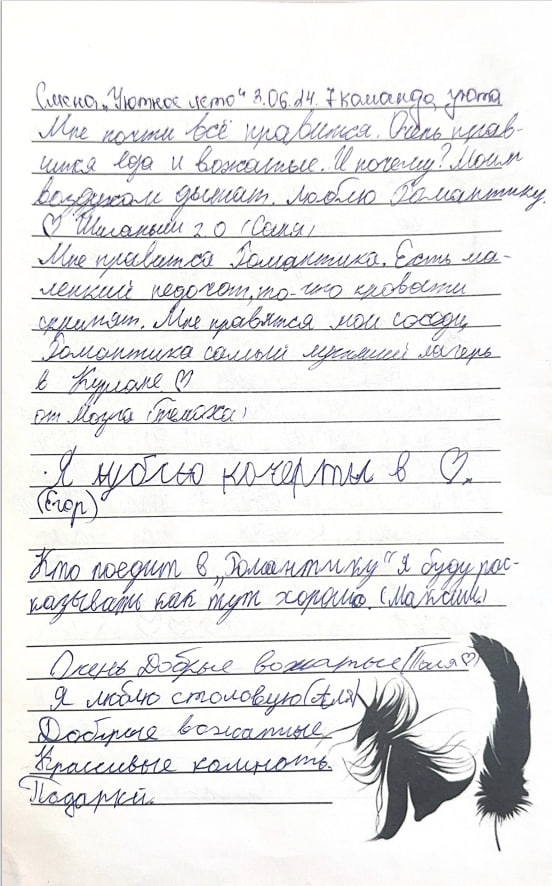 Смена „Уютное лето“ 3.06.24. 7 команда уюта
Мне почти всё нравится. Очень нрав-
ится еда и вожатые. И почему? Моим
воздухом дышат. Люблю Романтику.
♡ 2 0 (Саня)
Мне нравится Романтика. Есть ма-
ленький недочёт, то что кровати
скрипят. Мне нравятся мои соседи,
Романтика самый лучший лагерь
в ♡
от Мозга
Я люблю концерты в ♡.
(Егор)
Кто поедит в „Романтику“ я буду рас-
казывать как тут хорошо. (Максим)
Очень Добрые вожатые (Поля♡)
Я люблю столовую (Аля)
Добрые вожатые,
Красивые комноты.
Подарки.